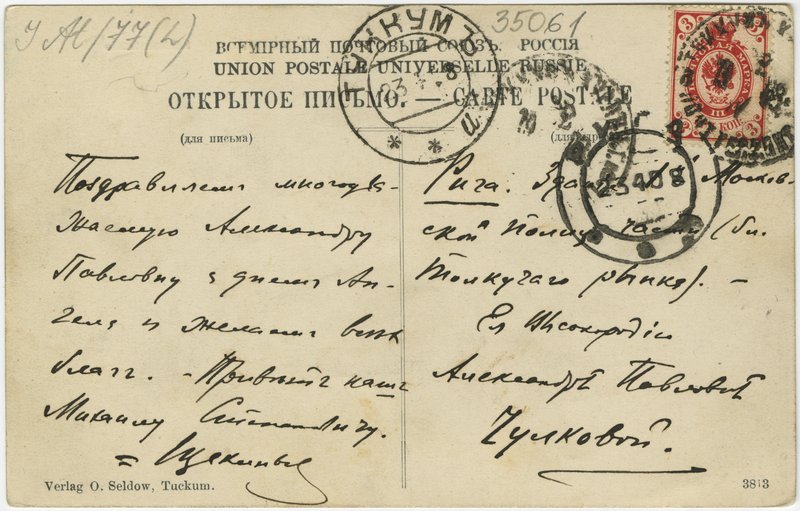 I Al/77(2)
35061
ВСЕМІРНЫЙ ПОЧТОВЫЙ СОЮЗЪ. РОССІЯ
UNION POSTALE UNIVERSELLE RUSSIE
ОТКРЫТОЕ ПИСЬМО. — CARTE POSTALE
ТУККУМЪ
23 4 8
(для письма)
23 4 08
Поздравляемъ многоува-
жаемую Александру
Павловну з днемъ Ан-
гела и желаемъ всѣхъ
благъ. - Привѣтъ нашъ
Михаилу Степановичу.
Щекины
Рига. Зданіе Москов-
ской Полиц. части (бл.
Толкучаго рынка). -
Ея Высокородію
Александрѣ Павловнѣ
Чулковой.
Verlag O. Seldow, Tuckum.
3813